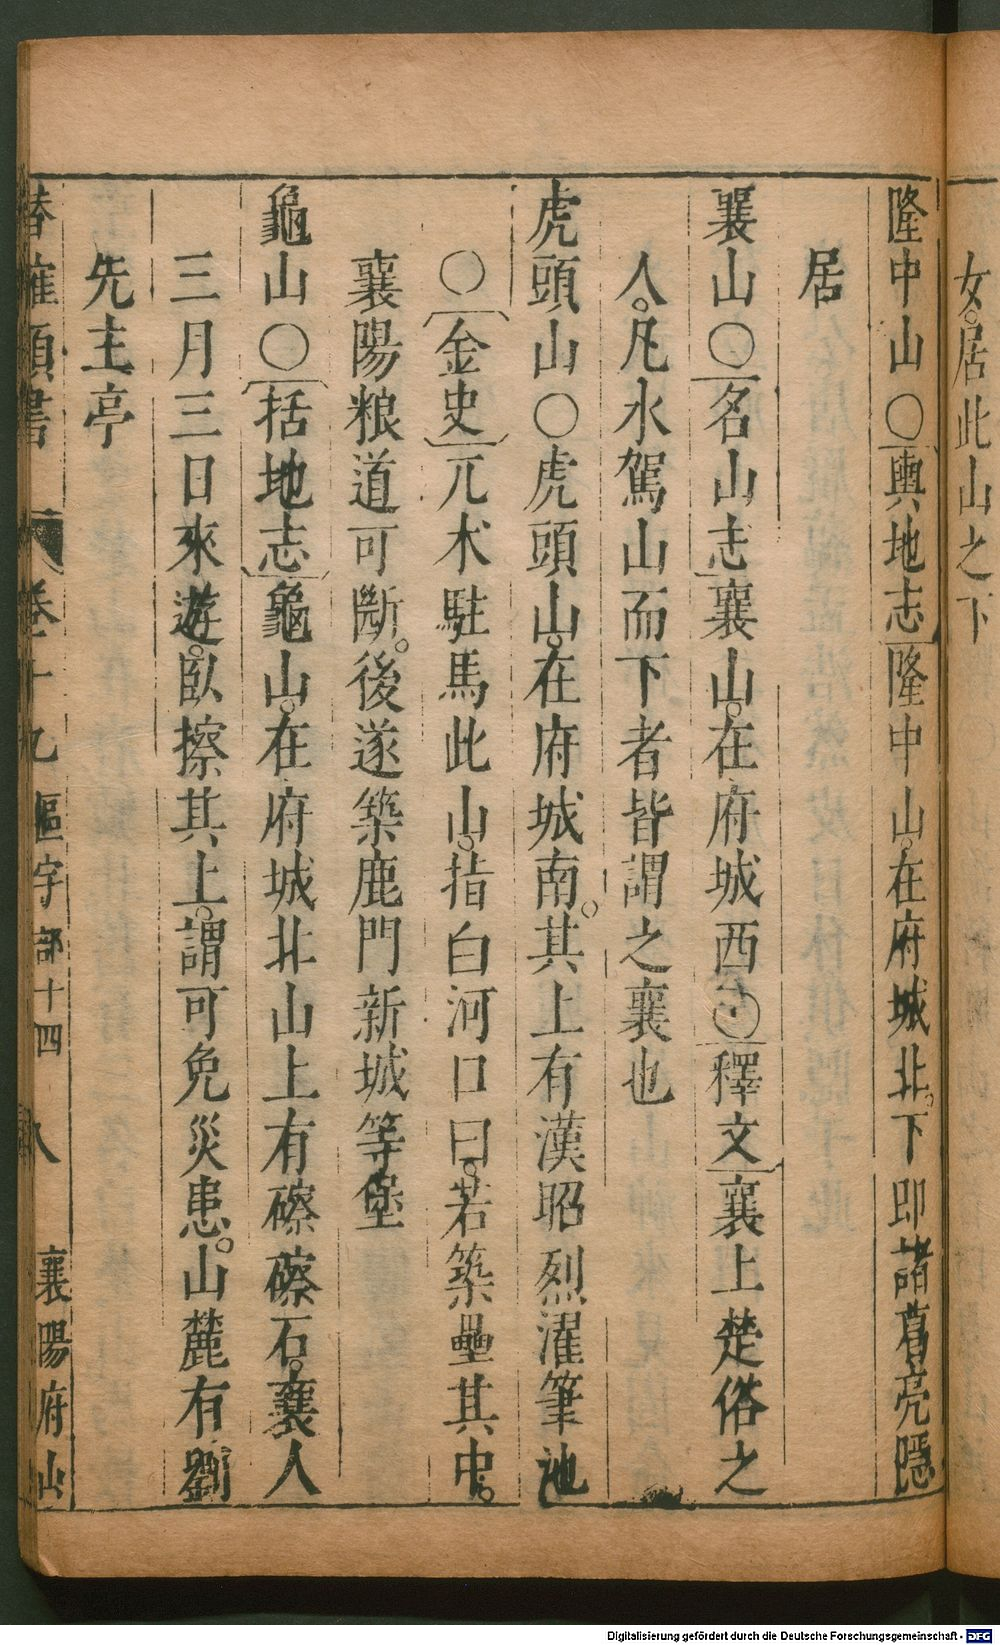 女。居此山之下
隆中山○輿地志隆中山。在府城北。下即諸葛亮隱
居
襄山○名山志襄山。在府城西○釋文襄上楚俗之
人。凡水駕山而下者皆謂之襄也
虎頭山○虎頭山。在府城南。其上有漢昭烈濯筆池
○金史兀术駐馬此山。指白河口曰。若築壘其中。
襄陽粮道可斷。後遂築鹿門新城等堡
龜山○括地志龜山。在府城北山上有磜磜石。襄人
三月三日來遊。臥擦其上。謂可免災患。山麓有劉
先主亭
卷十九 區字部十四 八 襄陽府山
Digitalisierung gefördert durch die Deutsche Forschungsgemeinschaft - DFG